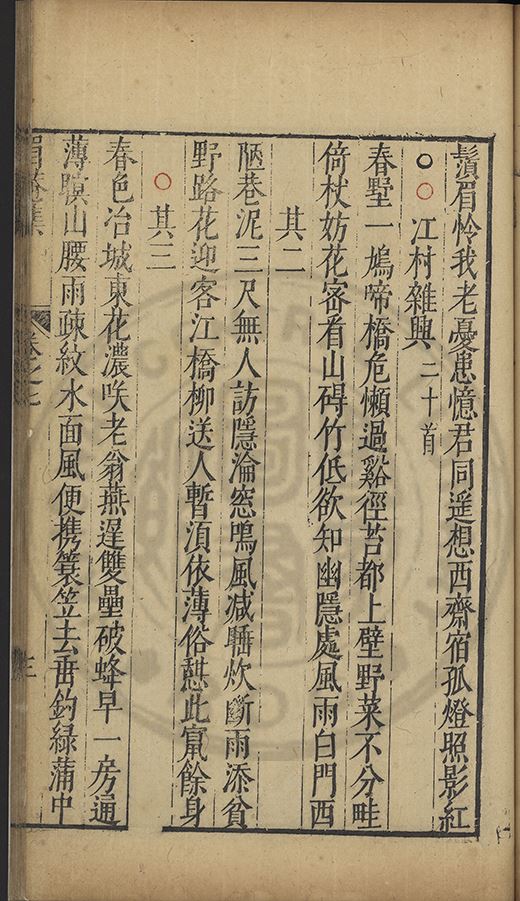 鬚眉怜我老憂患憶君同遥想西齋宿孤燈照影紅
江村雜興二十首
春墅一鳩啼橋危懶過谿徑苔都上壁野菜不分畦
倚杖妨花密看山碍竹低欲知幽隱處風雨白門西
其二
陋巷泥三尺無人訪隱淪窓鳴風减睡炊斷雨添貧
野路花迎客江橋柳送人暫須依薄俗慙此䆿餘身
其三
春色冶城東花濃咲老翁燕遅雙壘破蜂早一房通
薄暝山腰雨疎紋水面風便携簑笠去垂釣緑蒲中
眉菴集
卷之七